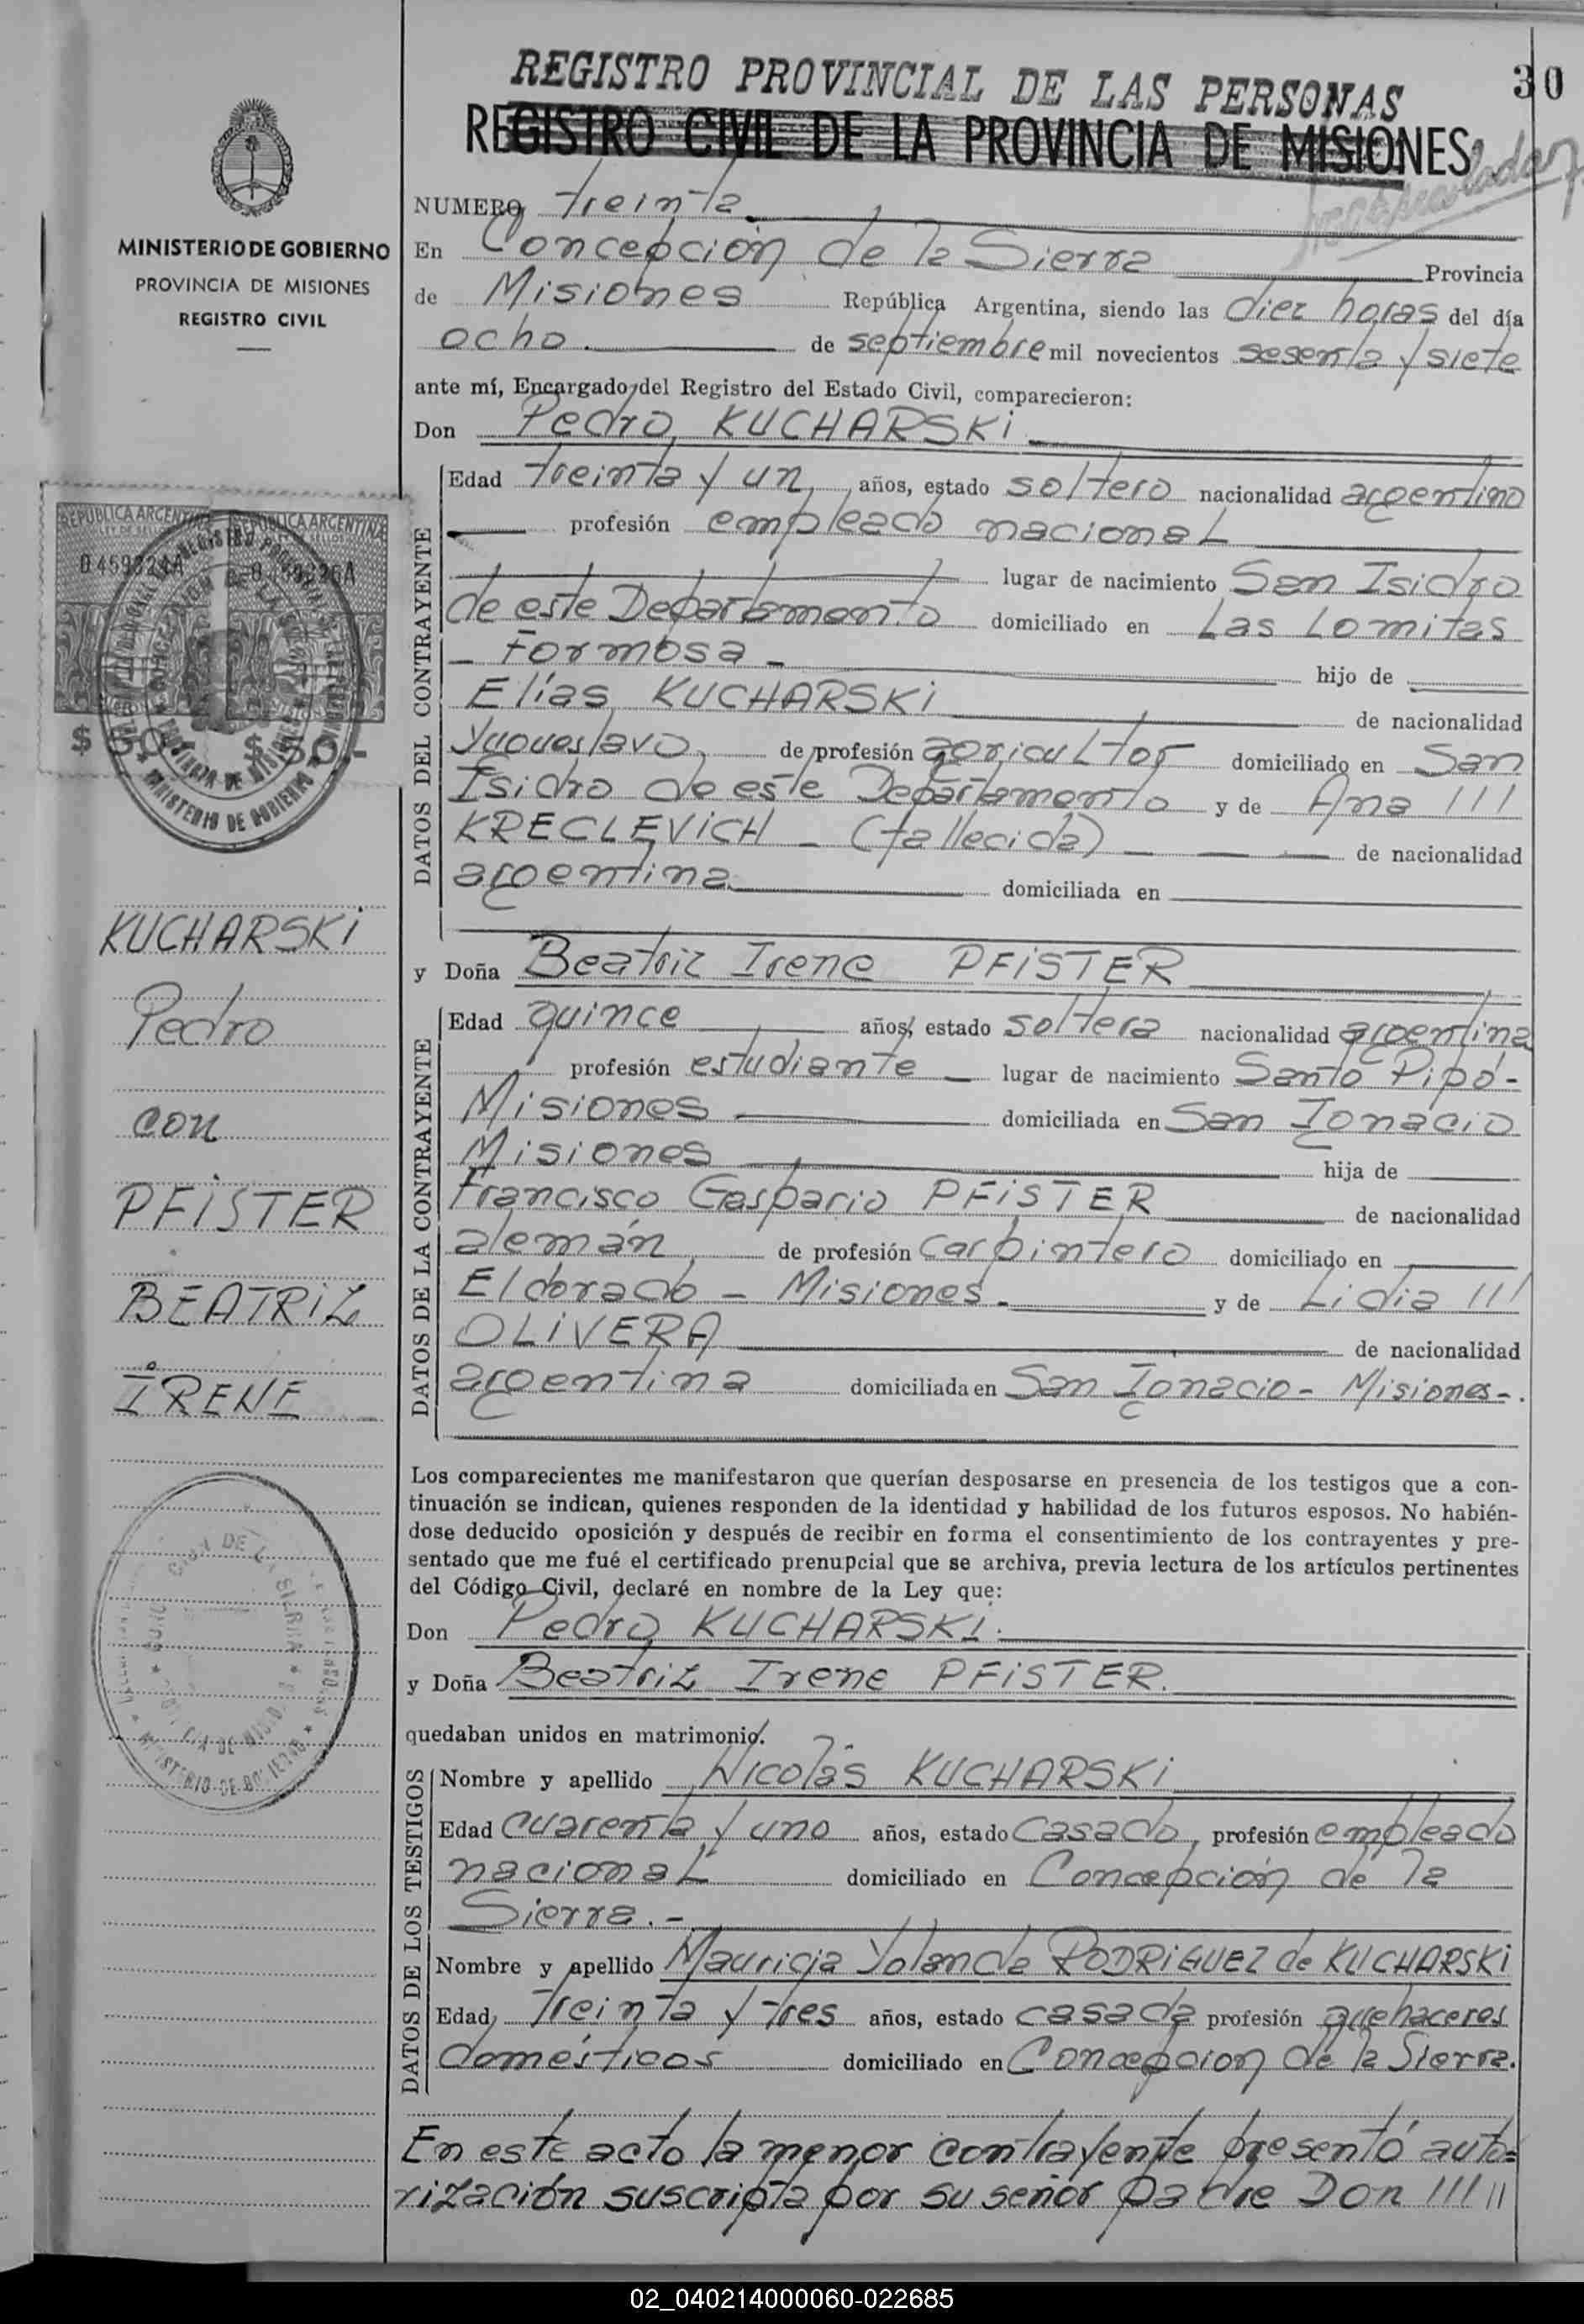 REGISTRO PROVINCIAL DE LAS PERSONAS
30
REGISTRO CIVIL DE LA PROVINCIA DE MISIONES
MINISTERIO DE GOBIERNO
PROVINCIA DE MISIONES
REGISTRO CIVIL
NUMERO treinta
En Concepción de la Sierra Provincia
de Misiones República Argentina, siendo las diez horas del día
ocho. de septiembre mil novecientos sesenta y siete
ante mí, Encargado del Registro del Estado Civil, comparecieron:
Don Pedro KUCHARSKI
DATOS DEL CONTRAYENTE
Edad treinta y un años, estado soltero nacionalidad argentino
profesión empleado nacional
lugar de nacimiento San Isidro
de este Departamento domiciliado en Las Lomitas
- Formosa - hijo de
Elías KUCHARSKI de nacionalidad
Yugoeslavo, de profesión agricultor domiciliado en San
Isidro de este Departamento y de Ana ///
KRECLEVICH - (fallecida) de nacionalidad
argentina domiciliada en
REPUBLICA ARGENTINA REPUBLICA ARGENTINA
$ 50 $ 50.-
PROVINCIA DE MISIONES
MINISTERIO DE GOBIERNO
KUCHARSKI
Pedro
con
PFISTER
BEATRIZ
IRENE
y Doña Beatriz Irene PFISTER
DATOS DE LA CONTRAYENTE
Edad quince años, estado soltera nacionalidad argentina
profesión estudiante lugar de nacimiento Santo Pipó-
Misiones domiciliada en San Ignacio
Misiones hija de
Francisco Gaspario PFISTER de nacionalidad
alemán de profesión carpintero domiciliado en
Eldorado - Misiones. y de Lidia ///
OLIVERA de nacionalidad
argentina domiciliada en San Ignacio - Misiones-.
Los comparecientes me manifestaron que querían desposarse en presencia de los testigos que a con-
tinuación se indican, quienes responden de la identidad y habilidad de los futuros esposos. No habién-
dose deducido oposición y después de recibir en forma el consentimiento de los contrayentes y pre-
sentado que me fué el certificado prenupcial que se archiva, previa lectura de los artículos pertinentes
del Código Civil, declaré en nombre de la Ley que:
Don Pedro KUCHARSKI.
y Doña Beatriz Irene PFISTER.
quedaban unidos en matrimonio.
DATOS DE LOS TESTIGOS
Nombre y apellido Nicolás KUCHARSKI
Edad cuarenta y uno años, estado casado, profesión empleado
nacional domiciliado en Concepción de la
Sierra.-
Nombre y apellido Mauricia Yolanda RODRIGUEZ de KUCHARSKI
Edad treinta y tres años, estado casada profesión quehaceres
domésticos domiciliado en Concepcion de la Sierra.
En este acto la menor contrayente presentó auto=
rización suscripta por su señor padre Don /////
02_040214000060-022685